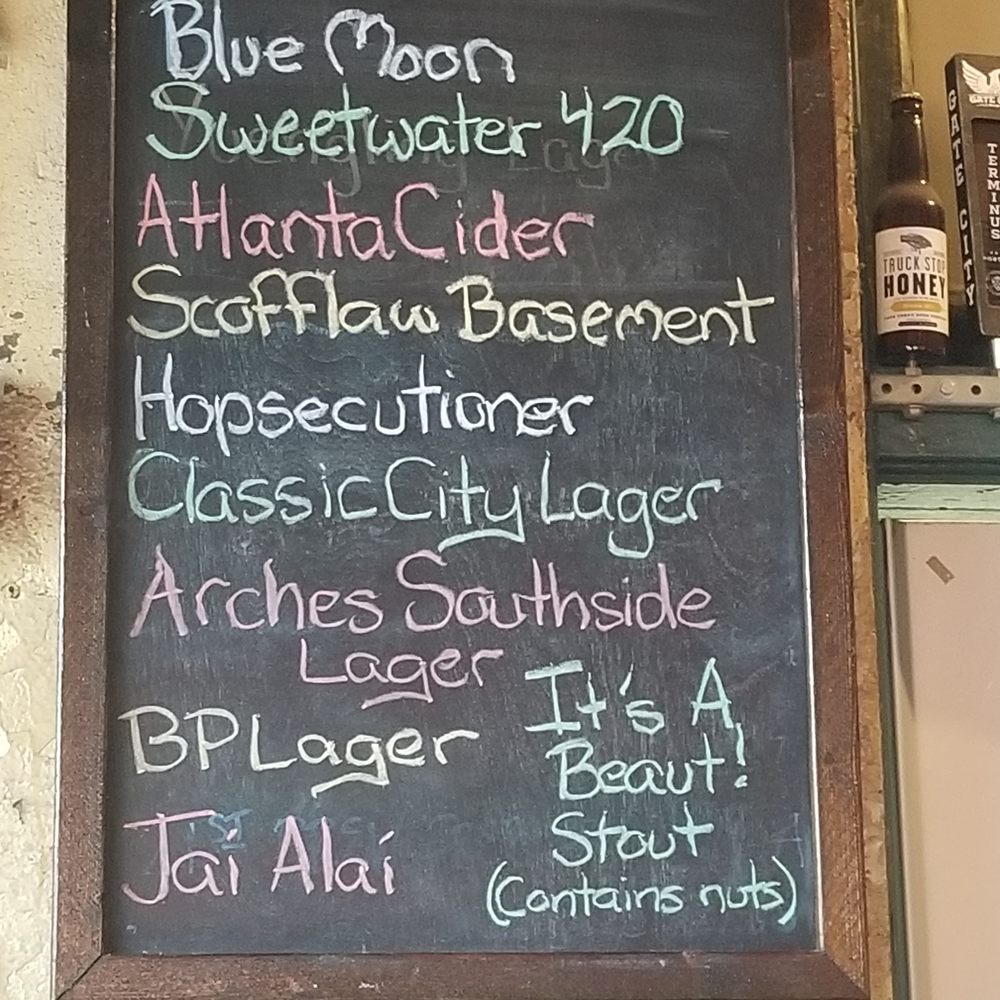 Blue Moon
Sweetwater 420
Yuengling Lager
Atlanta Cider
Scofflaw Basement
Hopsecutioner
Classic City Lager
Arches Southside
Lager
BP Lager
Jai Alai
It's A
Beaut!
Stout
(Contains nuts)
TRUCK STOP
HONEY
GATE CITY
TERMINUS